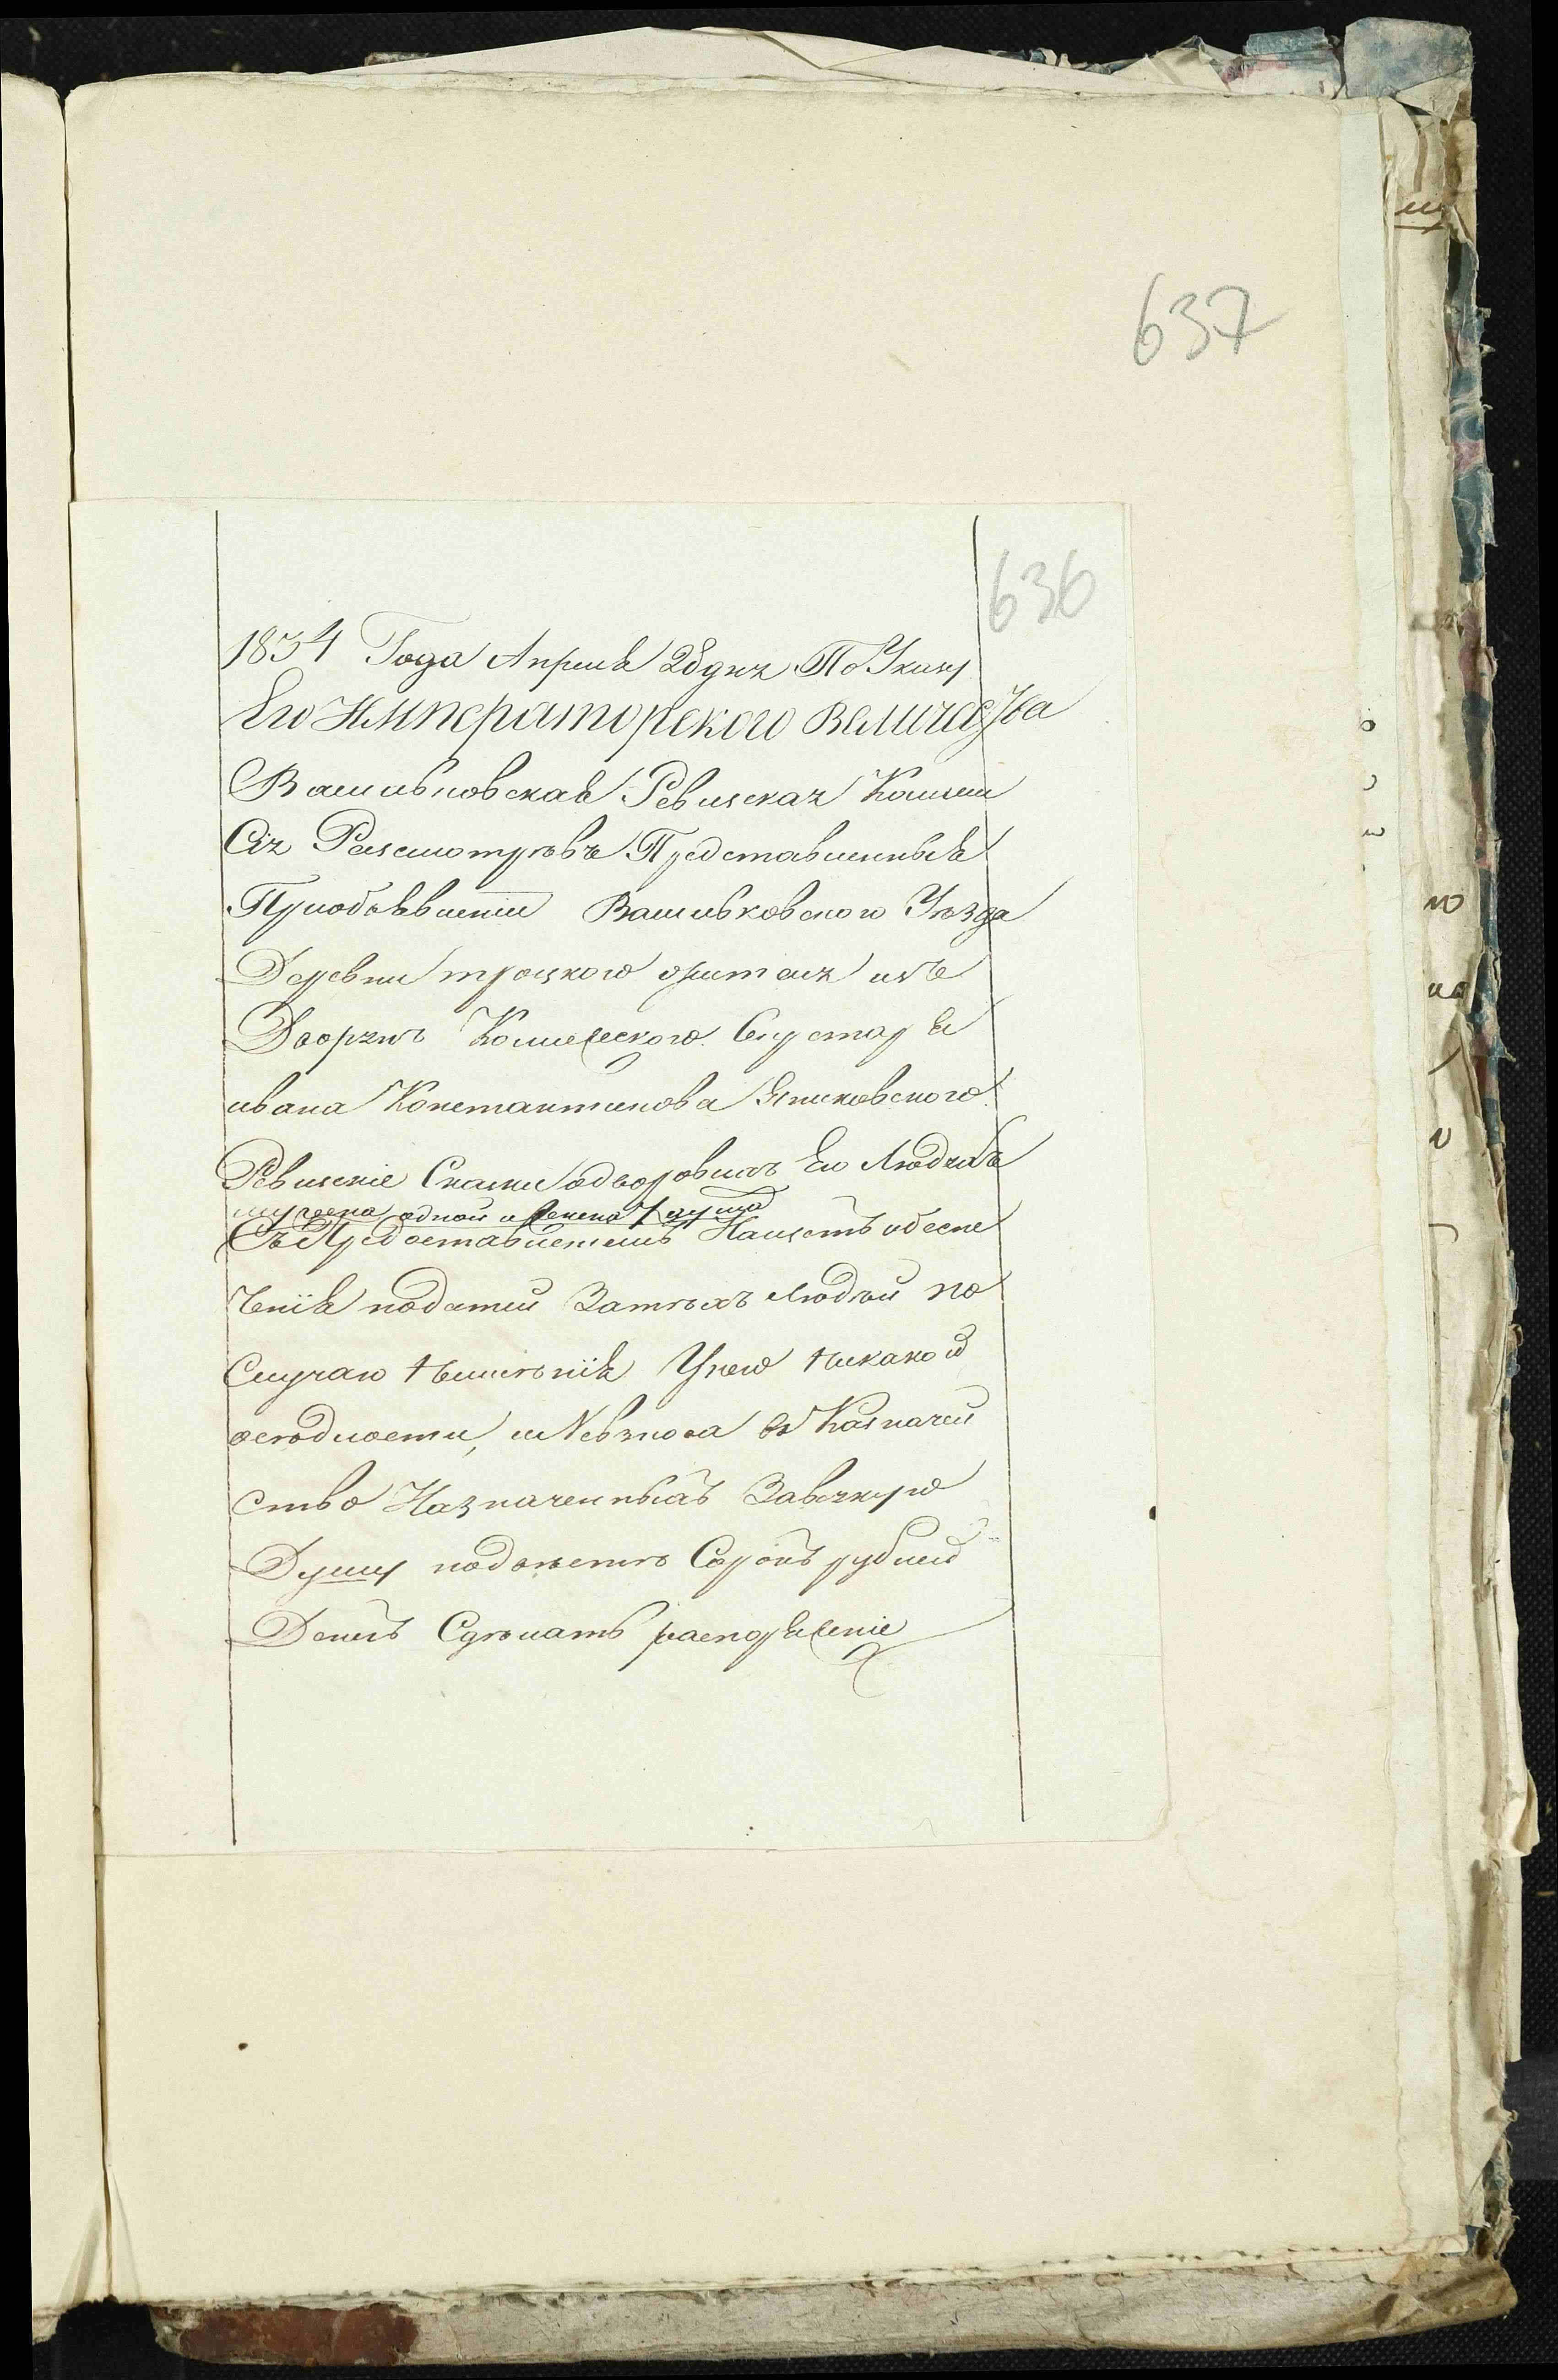 637
636
1834 Года Апреля 28 дня По Указу
Его Императорского Величества
Васильковская Ревизская Комми
Сія Разсмотревъ Представленныя
Приобъявленіи Васильковского Уезда
Деревни троцкого жителя изъ
Дворянъ Коллежского Секретаря
ивана Константинова
Ревизские Сказки одворовыхъ Его Людяхъ
мужеска одной и женска 1 душа
Съ Предоставленіемъ Насчетъ обеспе
Ченія податей Затехъ Людей по
Случаю Неименія Унего Никакой
оседлости, и взноса въ Казначей
ство Назначенныхъ Завсякую
Душу подвести Сорокъ рублей
Денегъ Сделать распоряженіе